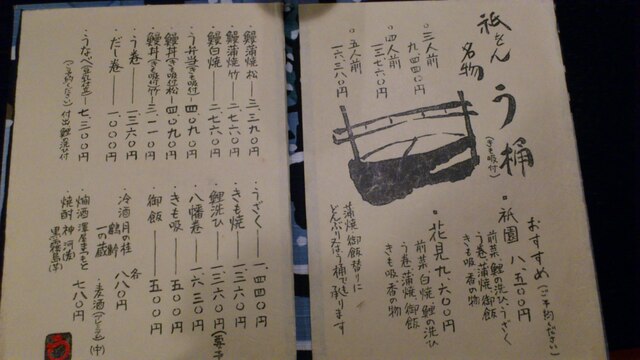 祇をん
名物
う桶
(きも吸付)
・三人前
九、四四〇円
・四人前
一三、七六〇円
・五人前
一六、三八〇円
おすすめ(ご予約ください)
・祇園 八、五〇〇円
前菜 鯉の洗ひ、うざく
う巻 蒲焼 御飯
きも吸 香の物
・花見 九、六〇〇円
前菜 白焼 鯉の洗ひ
う巻 蒲焼 御飯
きも吸 香の物
蒲焼 御飯替りに
どんぶりなう桶で承ります
・鰻蒲焼 松 — 三、三九〇円
・鰻蒲焼 竹 — 二、七六〇円
・鰻白焼 — 二、七六〇円
・う弁当(きも吸付) — 四、〇九〇円
・鰻丼(きも吸付)松 — 四、〇九〇円
・鰻丼(きも吸付)竹 — 三、一一〇円
・う巻 — 一、三六〇円
・だし巻 — 八六〇円
・うなべ — 七、三〇〇円
(ご予約ください) 付出 鯉の洗ひ付
・うざく — 一、四四〇円
・きも焼 — 一、三六〇円
・鯉洗ひ — 一、三六〇円
・八幡巻 — 一、六三〇円
・きも吸 — 五〇〇円
・御飯 — 五〇〇円
・冷酒 月の桂
鶴齢
一の蔵
各
八八〇円
・麦酒 (中)
・燗酒 澤屋まつもと
・焼酎
黒霧島(芋)
七八〇円